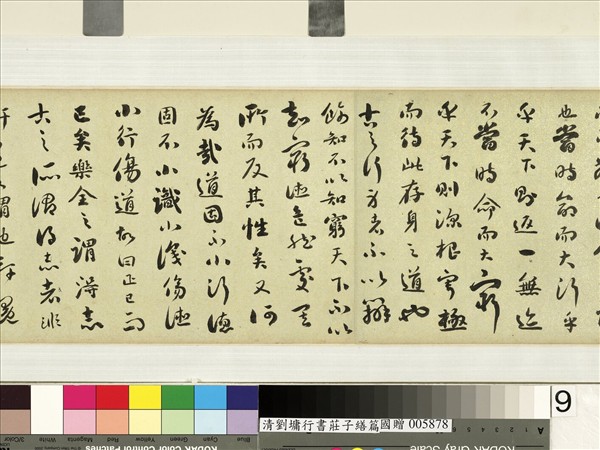 也當時命而大行乎
乎天下則返一無迹
不當時命而大窮
乎天下則深根寧極
而待此存身之道也
古之行身者不以辯
飾知不以知窮天下不以
知窮德危然處其
所而反其性矣又何
為哉道固不小行德
固不小識小識傷德
小行傷道故曰正己而
已矣樂全之謂得志
古之所謂得志者非
9
清劉墉行書莊子繕篇國贈 005878
3/Color White Magenta Red Yellow Green Cyan Blue